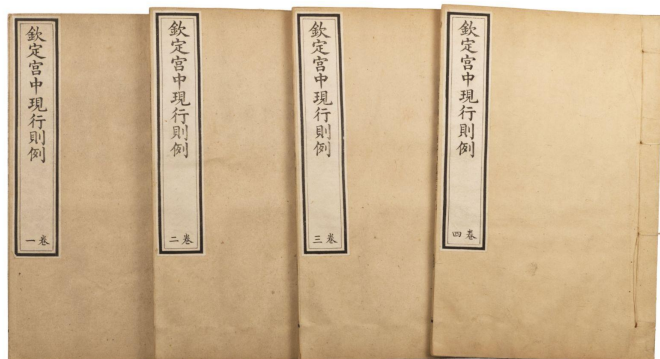 欽定宮中現行則例
卷一
欽定宮中現行則例
卷二
欽定宮中現行則例
卷三
欽定宮中現行則例
卷四